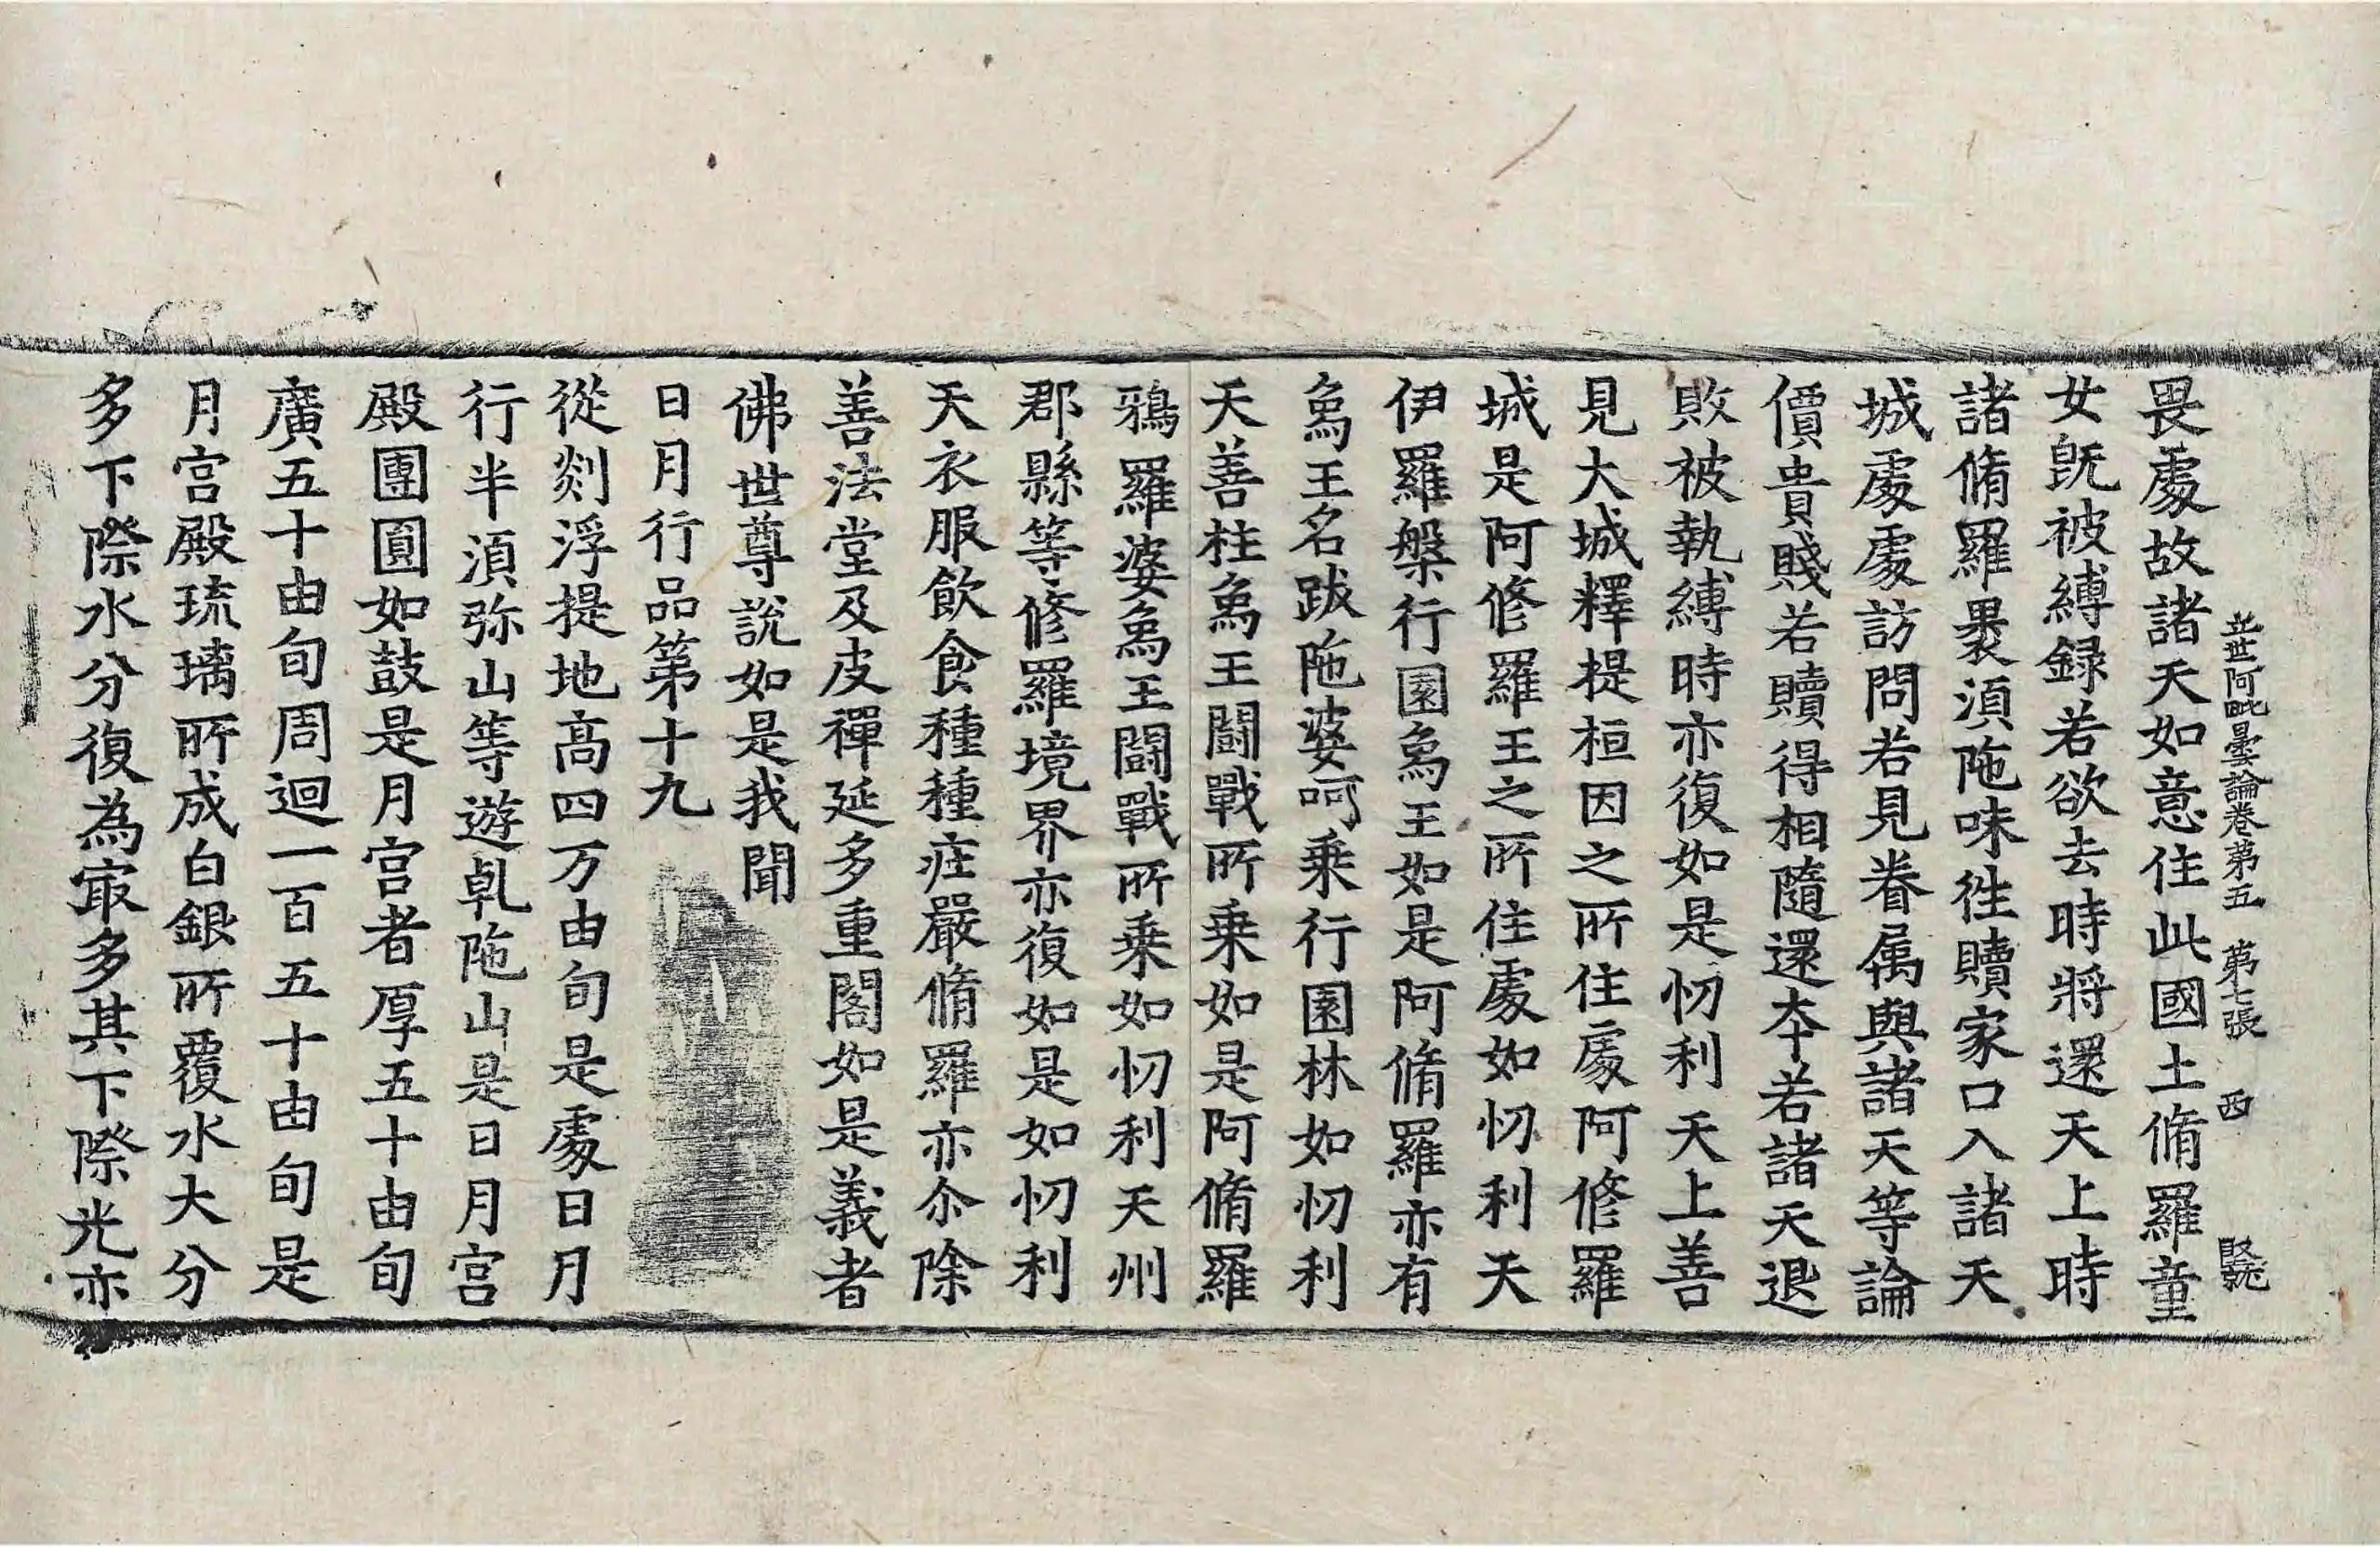 立世阿毗曇論卷第五 第七張 西
畏處故諸天如意住此國土脩羅童
女旣被縛録若欲去時將還天上時
諸脩羅褁湏陁味徃贖家口入諸天
城處處訪問若見眷属與諸天等論
價貴賤若贖得相隨還夲若諸天退
敗被執縛時亦復如是忉利天上善
見大城釋提桓因之所住處阿修羅
城是阿修羅王之所住處如忉利天
伊羅槃行園象王如是阿脩羅亦有
象王名跋陁婆呵乗行園林如忉利
天善柱象王闘戰所乗如是阿脩羅
鵶羅婆象王闘戰所乗如忉利天州
郡縣等修羅境界亦復如是如忉利
天衣服飲食種種庄嚴脩羅亦尒除
善法堂及皮禪延多重閣如是義者
佛世尊說如是我聞
日月行品第十九
從剡浮提地高四万由旬是處日月
行半湏弥山等遊乹陁山是日月宫
殿團圓如鼓是月宫者厚五十由旬
廣五十由旬周迴一百五十由旬是
月宫殿琉璃所成白銀所覆水大分
多下際水分復為冣多其下際光亦